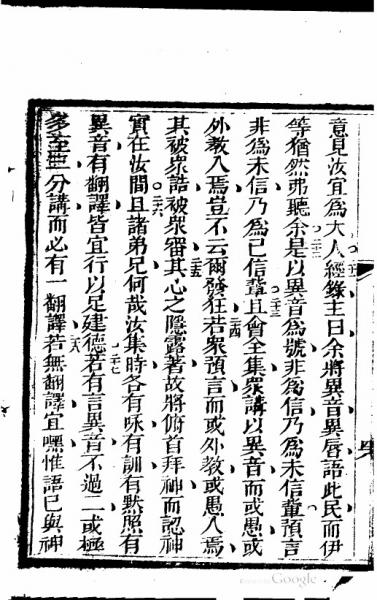 意見汝宜爲大人經錄主曰余將異音異唇語此民而伊
等猶然弗聽余是以異音爲號非爲信乃爲未信輩預言
非爲未信乃爲已信輩且會全集衆講以異音而或愚或
外教入焉豈不云爾發狂若衆預言而或外教或愚人焉
其被衆詰被衆審其心之隱露著故將俯首拜神而認神
實在汝間且諸弟兄何哉汝集時各有咏有訓有默照有
異音有翻譯皆宜行以足建德若有言異音不過二或極
多至三分講而必有一翻譯若無翻譯宜嘿惟語已與神
二一
二二
二三
二四
二五
二六
二七
二八
Google